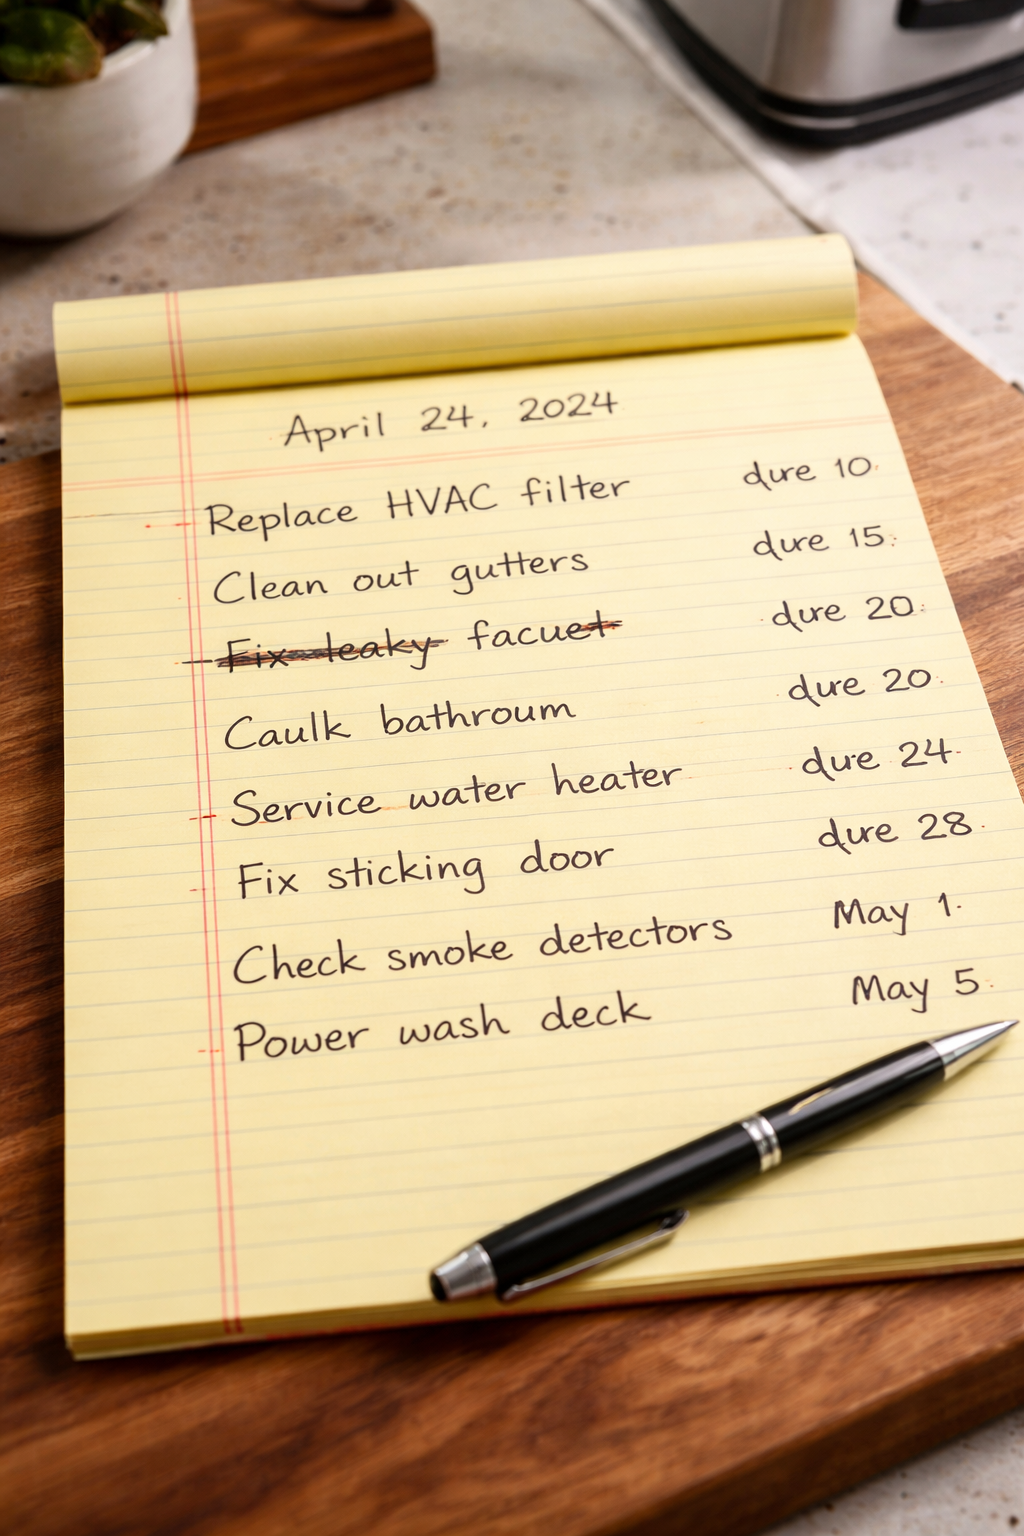 April 24, 2024
Replace HVAC filter dure 10.
Clean out gutters dure 15.
Fix leaky facuet dure 20.
Caulk bathroum dure 20.
Service water heater dure 24.
Fix sticking door dure 28.
Check smoke detectors May 1.
Power wash deck May 5.